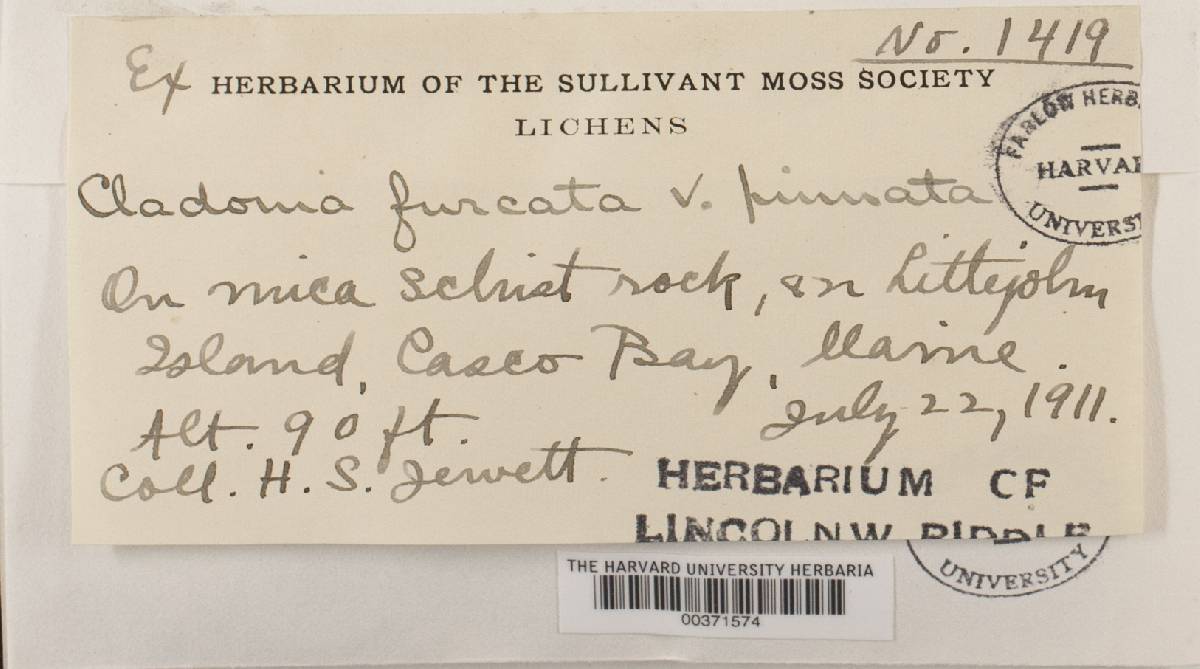 No. 1419
Ex HERBARIUM OF THE SULLIVANT MOSS SOCIETY
LICHENS
FARLOW HERB
HARVAR
UNIVERSI
Cladonia furcata v. pinnata
On mica schist rock, on Littlejohn
Island, Casco Bay, Maine.
Alt. 90 ft. July 22, 1911.
Coll. H. S. Jewett.
HERBARIUM OF
LINCOLN W. RIDDLE
UNIVERSITY
THE HARVARD UNIVERSITY HERBARIA
00371574